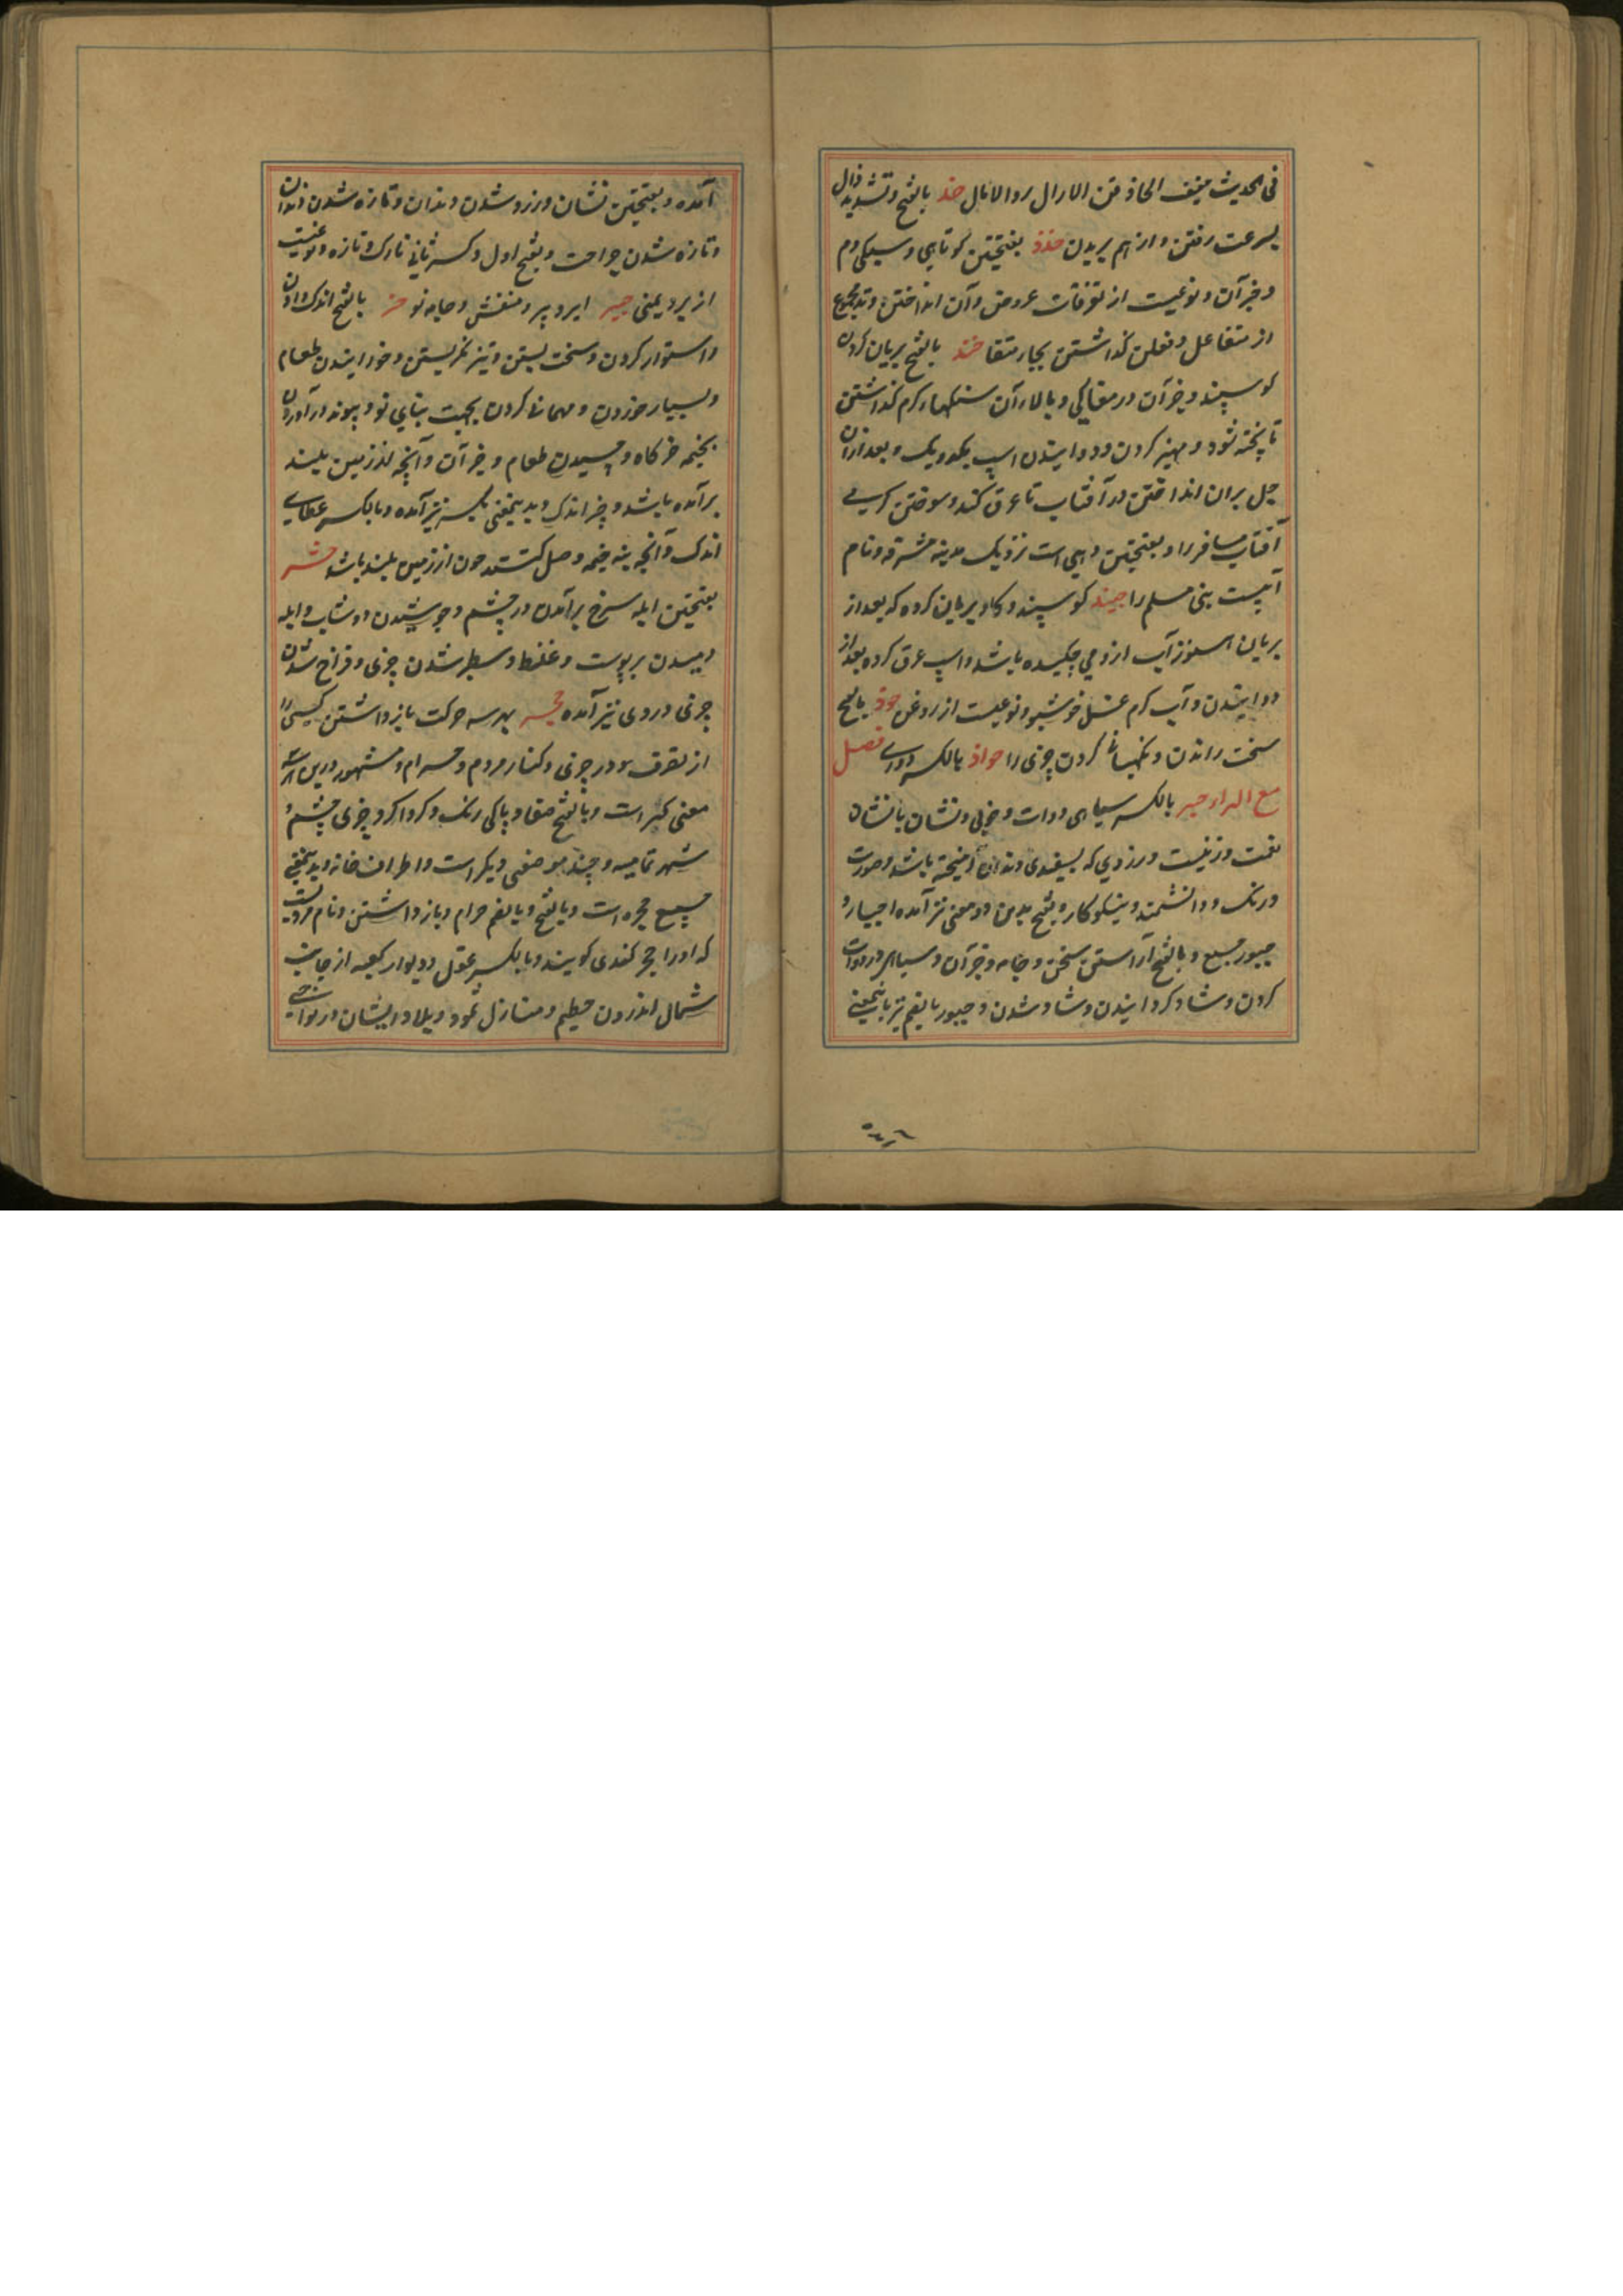 فی الحدیث خفیف الحاذ حذ بالفتح وتشدید ذال
بسرعت رفتن و از هم بریدن حذذ بفتحتین کوتاهی و سبکی دم
و جز آن و نوعیست از تصرفات عروض و آن انداختن وتد مجموع
از متفاعلن و فعلن گذاشتن بجای متفا حنذ بالفتح بریان کردن
کوسپند و جز آن در مغاکی و بالاء آن سنگهاء کرم گذاشتن
تا پخته شود و مهیز کردن و دوانیدن اسپ یک و بعد ازان
جل بران انداختن در آفتاب تا عرق کند و سوختن
آفتاب مسافر را و بفتحتین دهی است نزدیک مدینه مشرفه و نام
آبیست بنی مسلم را حنیذ کوسپند و کاو بریان کرده که بعد از
بریان هنوز آب از وی چکیده باشد و اسپ عرق کرده بعد از
دوانیدن و آب کرم غسل خوشبو و نوعیست از روغن حوذ بالفتح
سخت راندن و نکهبانی کردن چیزی را حواذ بالکسر دوری فصل
مع الراء حبر بالکسر سیاهی دوات و خوبی و نشان یا نشان
نعمت و زینت و زردی که بسپیدی دندان آمیخته باشد و صورت
و رنک و دانشمند و نیکوکار و بفتح بدین دو معنی نیز آمده احبار و
حبور جمع و بالفتح آراستن سخن و جامه و جز آن و سیاهی در دوات
کردن و شاد کردانیدن و شاد شدن و حبور بالضم نیز باین معنی
آمده و بفتحتین نشان و زرد شدن دندان و تازه شدن دندان
و تازه شدن جراحت و بفتح اول و کسر ثانی نازک و تازه و نوعیست
از برد یمنی حبیر ابر و برد منقش و جامه نو حتر بالفتح اندک دادن
و استوار کردن و سخت بستن و تیز نکریستن و خورانیدن طعام
و بسیار خوردن و مهمانی کردن بجهت بنای نو و پیوند درآوردن
بخیمه خرکاه و چسپیدن طعام و جز آن و آنچه از زمین بلند
برآمده باشد و چیز اندک و بدین معنی بکسر نیز آمده و بالکسر عطای
اندک و آنچه بنه خیمه وصل کنند چون از زمین بلند باشد حثر
بفتحتین آبله سرخ برآمدن در چشم و جوشیدن دوشاب و آبله
دمیدن بر پوست و غلیظ و سطبر شدن چیزی و فراخ شدن
چیزی و دردی نیز آمده حجر بهر سه حرکت بازداشتن کسی را
از تصرف نمودن در چیزی و کنار مردم و حرام و مشهور درین
معنی کسر است و بالفتح صفا و پاکی رنک و کرداکرد چیزی چشم و
شهر تمامیه و چند موضعی دیکر است و اطراف خانه و بدین معنی
جمع حجره است و بالفتح و بالضم حرام و بازداشتن و نام مردیست
که او را حجر کندی کویند و بالکسر عقل و دیوار کعبه از جانب
شمال اندرون حطیم و منازل ثمود و بلاد ایشان در نواحی